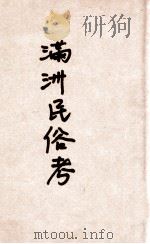 研狗
满洲民俗考
mtoou.info